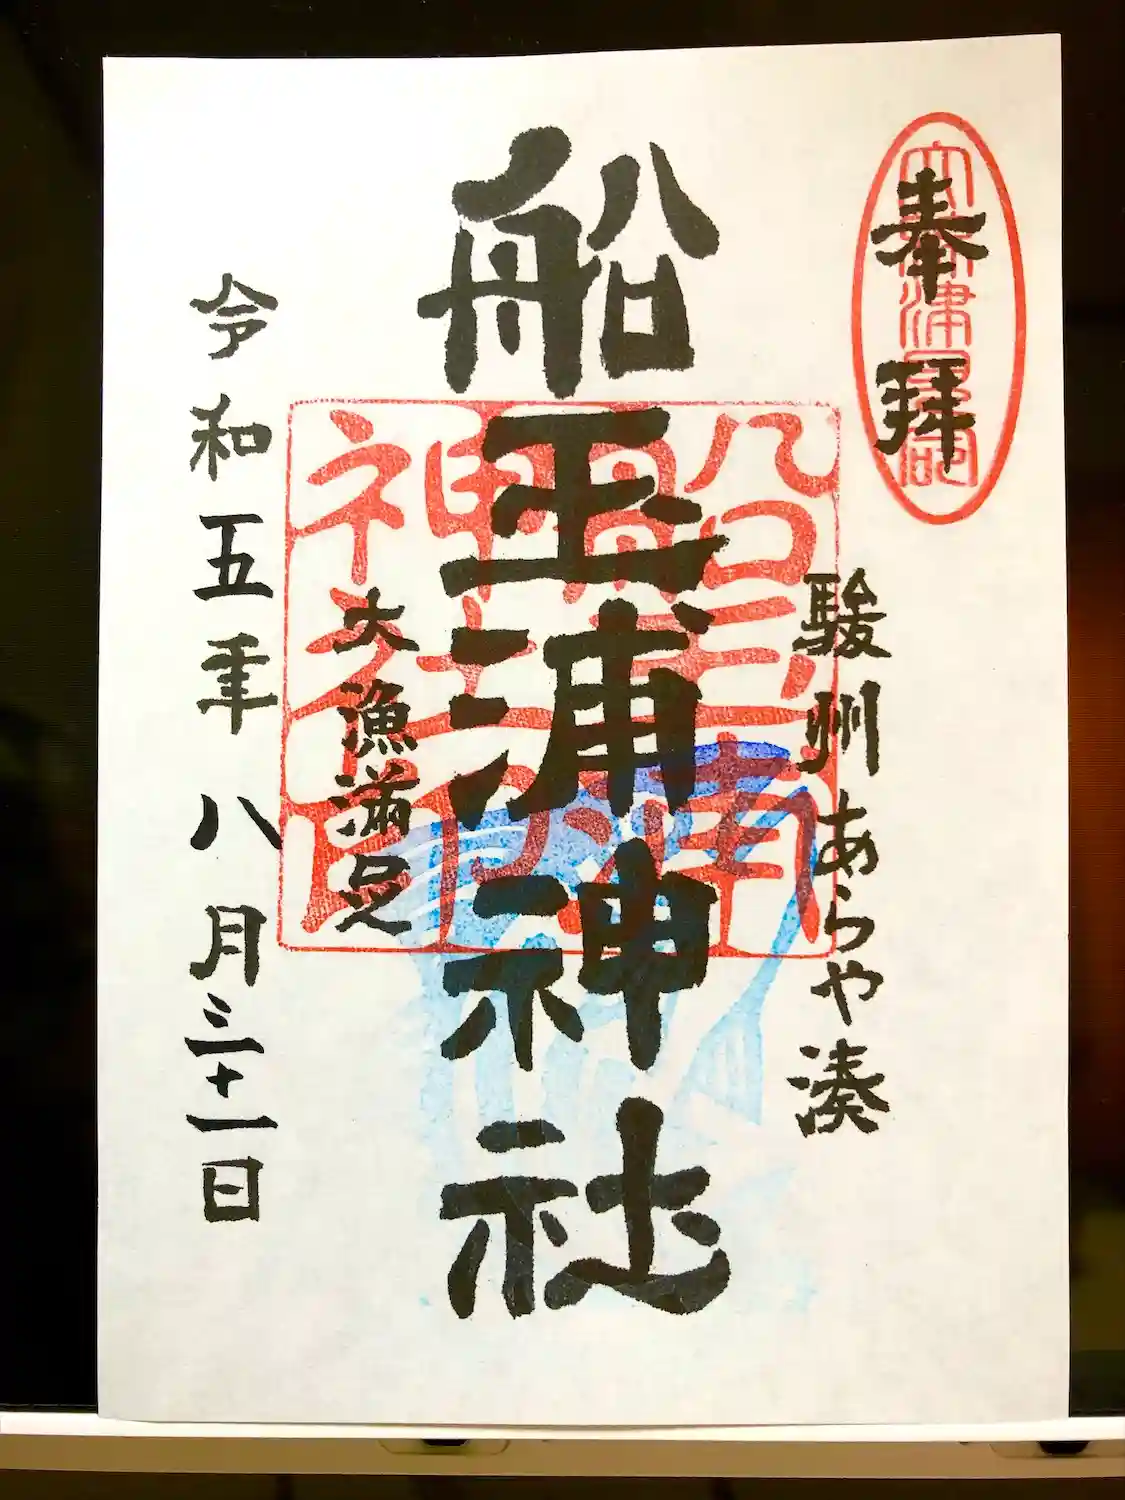 奉拝
駿州あらや湊
船玉浦神社
船玉浦
神社印
大漁満足
令和五年八月三十一日